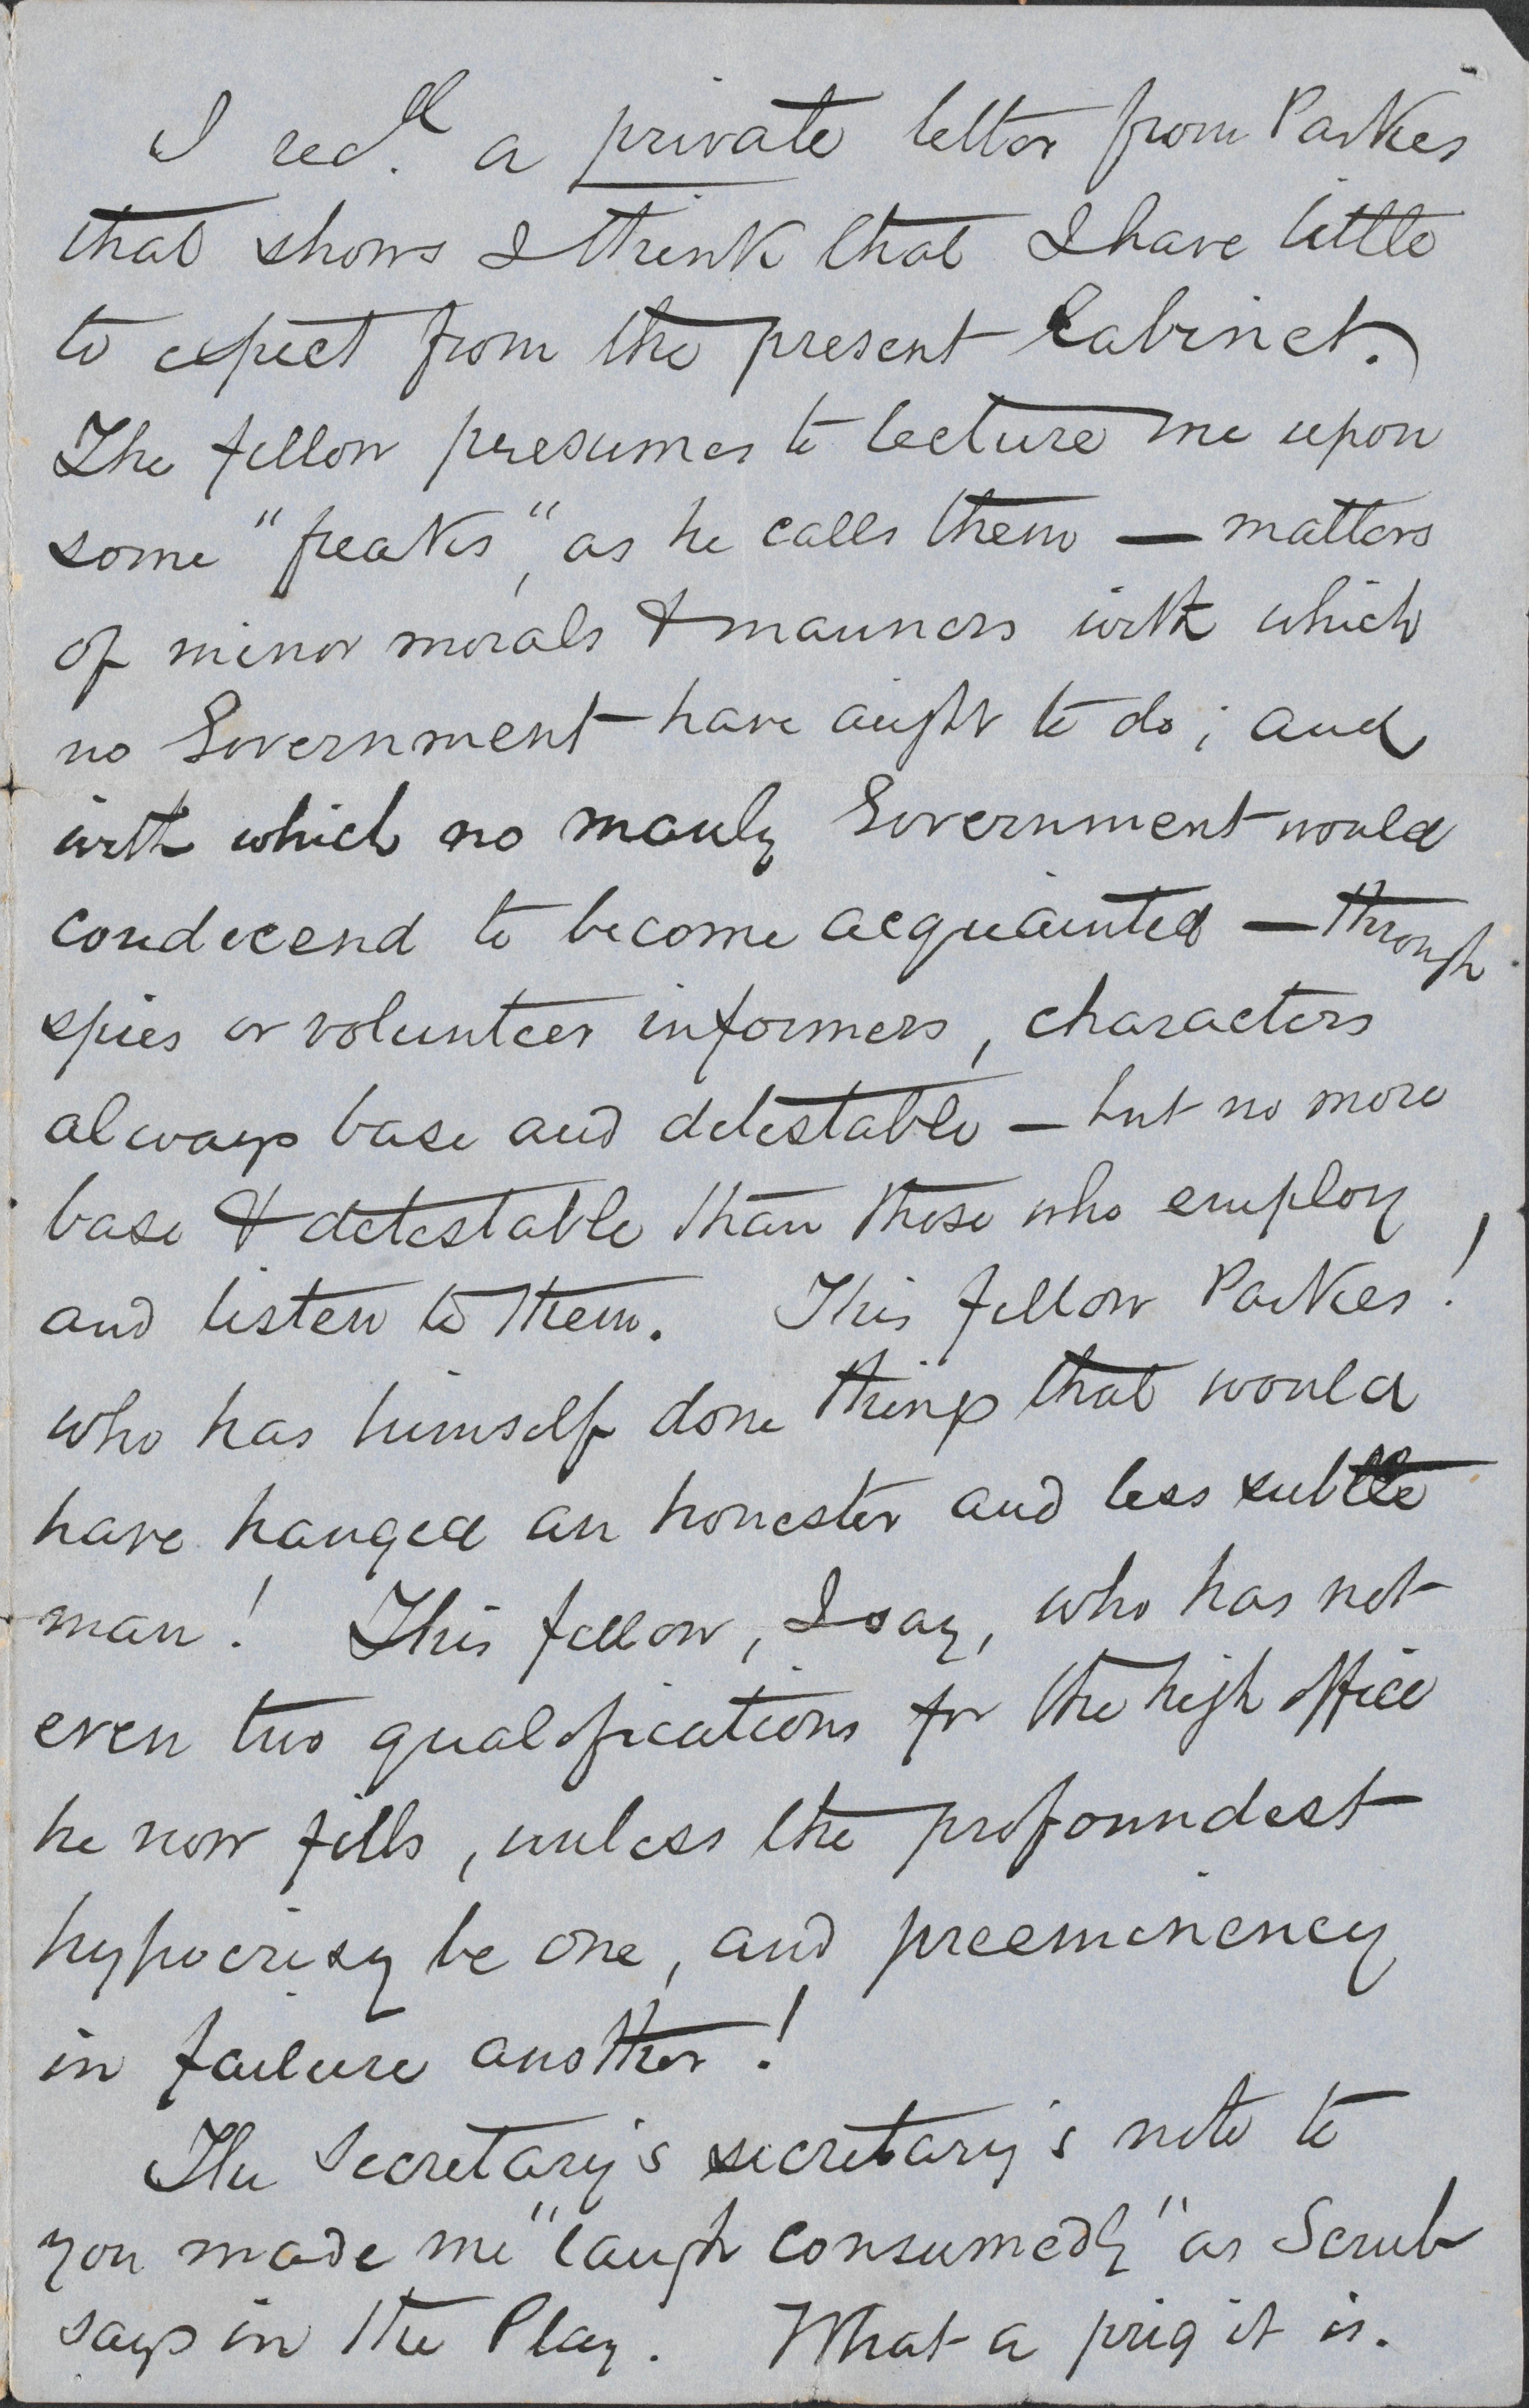 I recd. a private letter from Parkes
that shows I think that I have little
to expect from the present Cabinet.
The fellow presumes to lecture me upon
some "freaks," as he calls them — matters
of minor morals & manners with which
no Government have aught to do; and
with which no manly Government would
condecend to become acquainted — through
spies or volunteer informers, characters
always base and detestable — but no more
base & detestable than those who employ
and listen to them. This fellow Parkes!
who has himself done things that would
have hanged an honester and less subtle
man! This fellow, I say, who has not
even two qualifications for the high office
he now fills, unless the profoundest
hypocrisy be one, and preeminency
in failure another!
The Secretary's secretary's note to
you made me "laugh consumedly" as Scrub
says in the Play. What a prig it is.